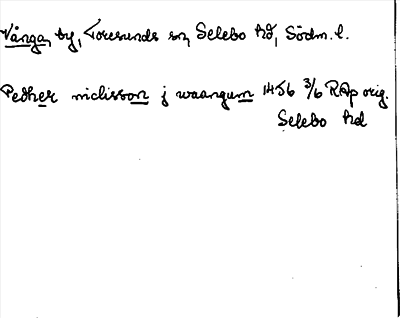 Vånga, by, Toresunds sn, Selebo hd, Södm. l.
Pedher niclisson j waangum 1456 3/6 RAp orig.
Selebo hd